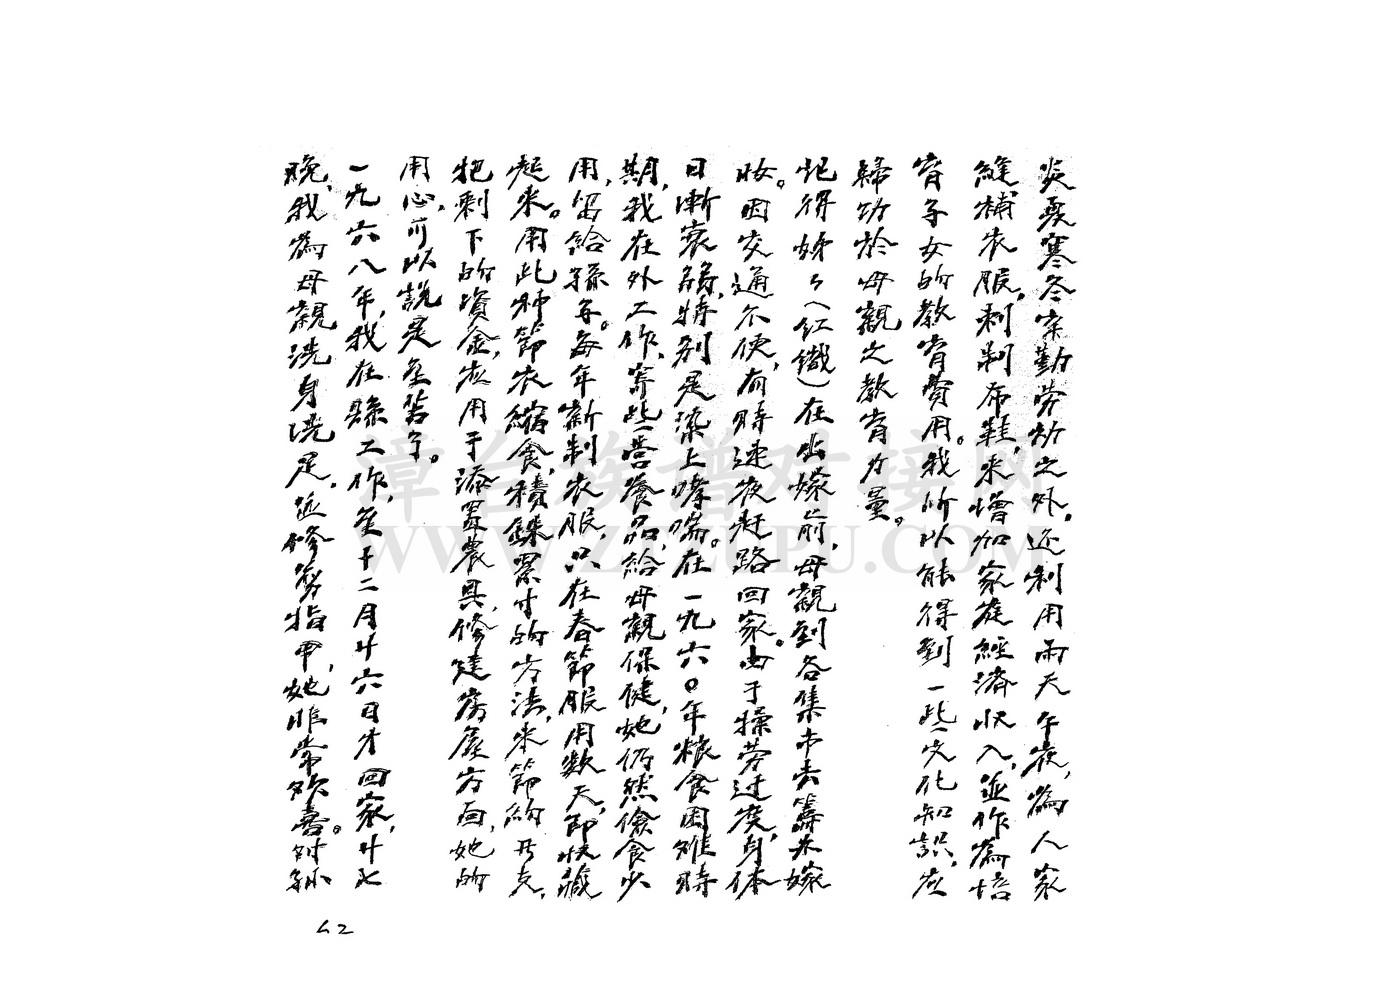 炎夏寒冬末勤劳功之外，还利用雨天午夜，為人家
縫補衣服，刺制布鞋，来增加家庭經濟收入，並作為培
育子女的教育費用。我所以能得到一些文化知識，应
歸功於母親之教育力量。
記得姊々(紅織)在出嫁前，母親到各集市去籌办嫁
妝。因交通不便，有時連夜赶路回家。由于操劳过度，身体
日漸衰弱，特别是染上哮喘。在一九六〇年粮食困难時
期，我在外工作，寄些营养品給母親保健，她仍然儉食少
用，留給孫子。每年新制衣服，只在春節服用数天，即收藏
起来。用此种節衣縮食，積銖累寸的方法，来節約开支，
把剩下的資金应用于添置農具，修建房屋方面，她的
用心，可以說是至苦了。
一九六八年，我在縣工作，至十二月廿六日才回家，廿七
晚，我為母親洗身洗足，並修剪指甲，她非常欢喜。对孙
42
漳台族谱对接网
WWW.ZTZUPU.COM